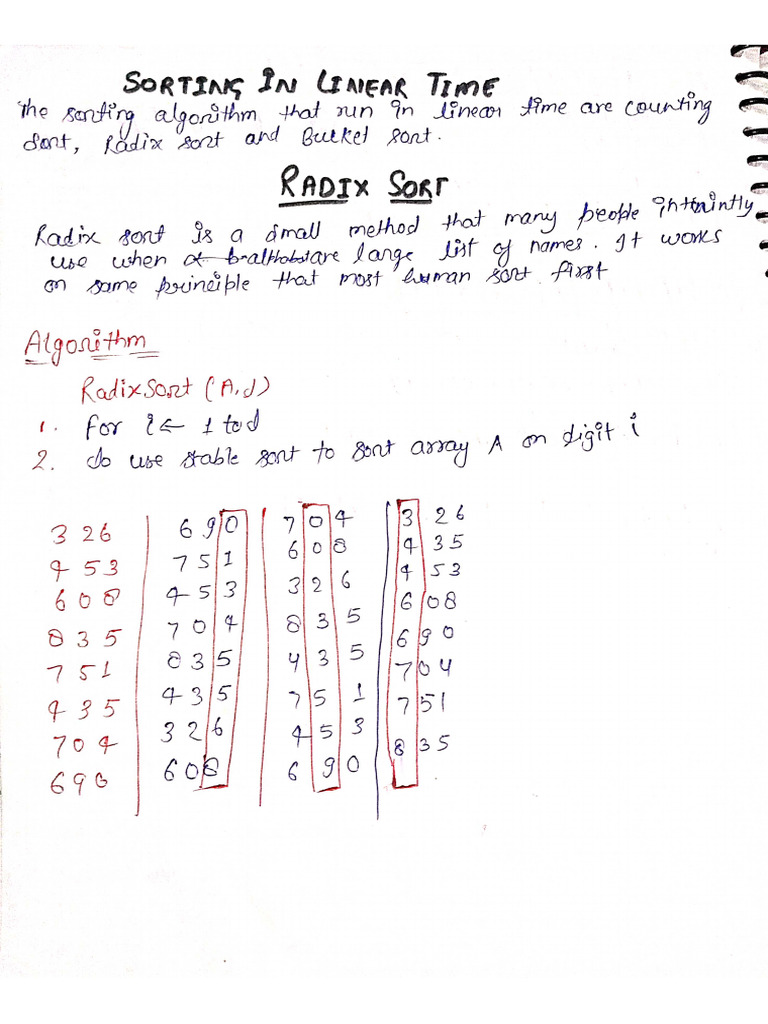 SORTING IN LINEAR TIME
The sorting algorithm that run in linear time are counting
Sort, Radix sort and Bucket sort.
RADIX SORT
Radix sort is a small method that many people
use when large list of names. It works
on same principle that most human sort first
Algorithm
RadixSort (A,d)
1. for i ← 1 to d
2. do use stable sort to sort array A on digit i
326 690 704 326
453 751 608 435
608 453 326 453
835 704 835 608
751 835 435 690
435 435 751 704
704 326 453 751
690 608 690 835